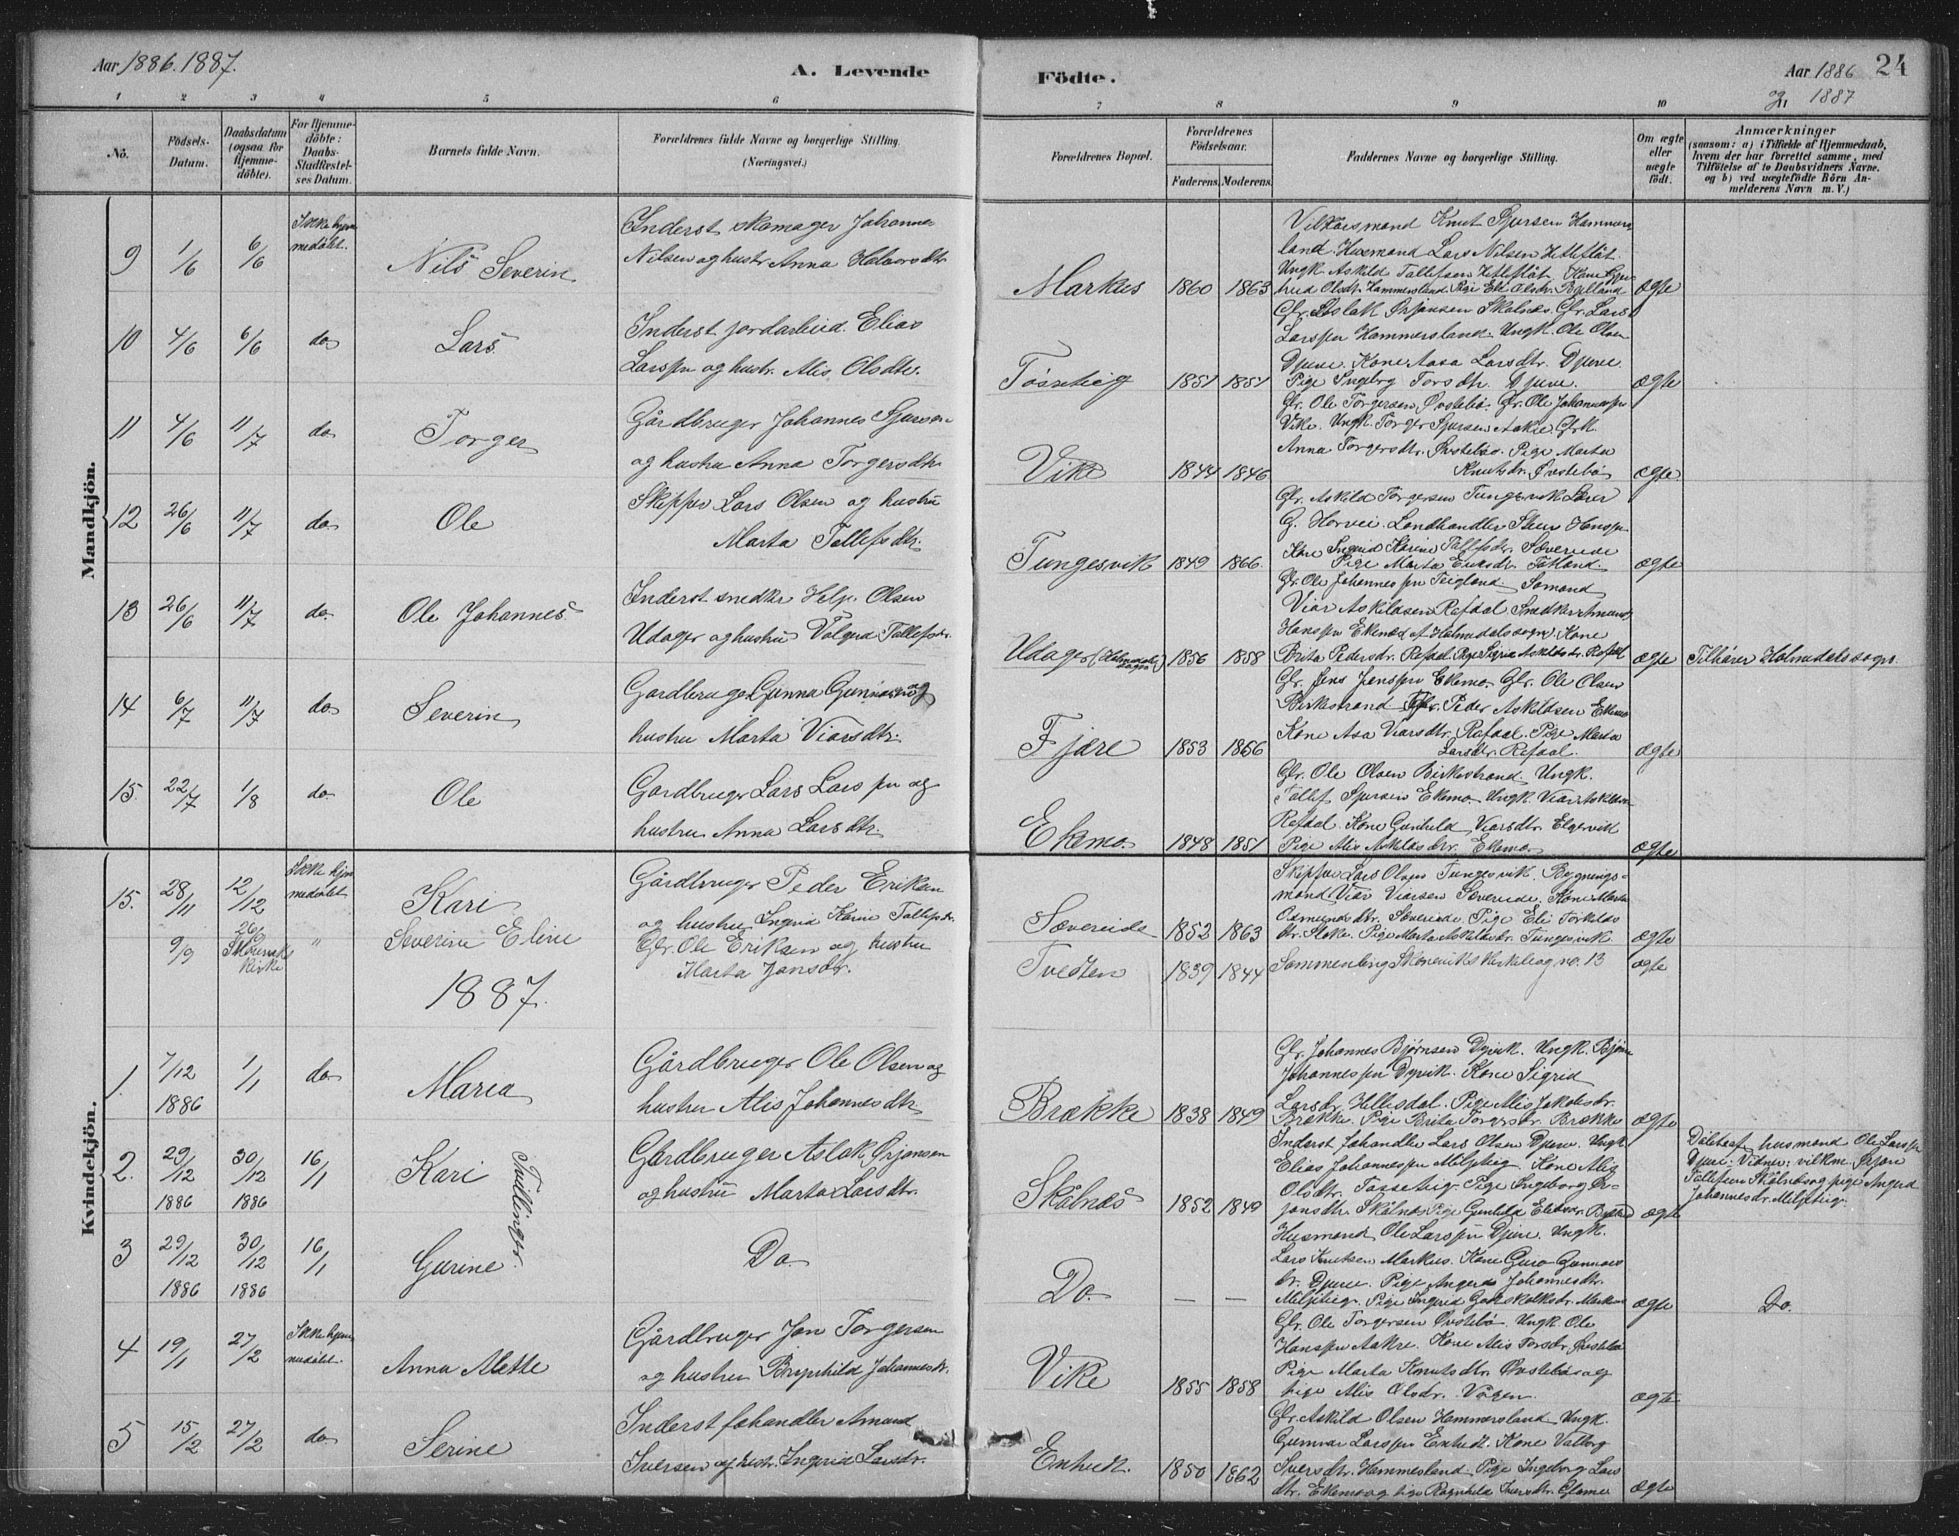 Aar 1886. 1887.
A. Levende
Födte.
Aar 1886
24
og 1887
1 2 3 4 5 6 7 8 9 10 11
No.
Födsels-
Datum.
Daabsdatum
(ogsaa for
Hjemme-
döbte).
For Hjemme-
döbte:
Daabs-
Stadfæstel-
ses Datum.
Barnets fulde Navn.
Forældrenes fulde Navne og borgerlige Stilling.
(Næringsvei.)
Forældrenes Bopæl.
Forældrenes
Födselsaar.
Faderens. Moderens.
Faddernes Navne og borgerlige Stilling.
Om ægte
eller
uægte
födt.
Anmærkninger
(saasom: a) i Tilfælde af Hjemmedaab,
hvem der har forrettet samme, med
Tilföielse af to Daabsvidners Navne.
og b) ved uægtefödte Börn An-
melderens Navn m. V.)
Mandkjön.
9 1/6 6/6 Ikke hjem
medöbt.
Nils Severin
Inderst skomager Johannes
Nilsen og hustr. Anna Halvorsdtr
Markus 1860 1863
Vilkaarsmand Knut Sjursen Hammers
land. Husmand Lars Nilsen Hetleflåt
Ungk Askild Tollefsen Hetleflåt. Kone Gjer
trud Olsdtr. Hammersland. Pige Eli Olsdtr. Bylland
ægte
10 4/6 6/6 do
Lars
Inderst jordarbeid. Elias
Larssen og hustr. Alis Olsdtr.
Tössetieg 1851 1851
Gbr. Aslak Ørjansen Skålnæs. Gbr. Lars
Larssen Hammersland. Ungk. Ole Olsen
Djuve. Kone Aasa Larsdtr. Djuve
Pige Ingebrg Torsdtr. Djuve.
ægte
11 4/6 11/7 do
Torger
Gårdbruger Johannes Sjursen
og hustru Anna Torgersdtr.
Vike 1844 1846
Gbr. Ole Torgersen Øvstebö. Gbr. Ole Johannessen
Vike. Ungk. Torger Sjursen Aakre. Gbrk.
Anna Torgersdtr. Øvstebö. Pige Marta
Knutsdtr. Øvstebö
ægte
12 26/6 11/7 do
Ole
Skipper Lars Olsen og hustru
Marta Tollefsdtr.
Tungesvik 1849 1866
Gbr. Askild Torgersen Tungesvik Lærer
G. Horvei. Landhandler Sten Hanssen
Kone Ingrid Karine Tollefsdtr. Sævereide
Pige Marta Eriksdtr. Totland.
ægte
13 26/6 11/7 do
Ole Johannes
Inderst snedker Help. Olsen
Udager og hustru Valgerd Tollefsdtr.
Udager (Holmedals sogn) 1856 1858
Gbr. Ole Johannessen Teigland. Sömand
Viar Askildsen Rafdal Snedker Amund
Hanssen Ekenæs af Holmedals sogn. Kone
Brita Pedersdtr. Rafdal. Pige Sigrid Askildsdtr. Rafdal
ægte
Tilhører Holmedals sogn.
14 6/7 11/7 do
Severin
Gardbruger Gunna Gunnarsen og
hustru Marta Viarsdtr.
Fjære 1853 1856
Gbr. Jens Jenssen Ekemo. Gbr. Ole Olsen
Birkestrand Gbr. Peder Askildsen Ekemo
Kone Asa Viarsdtr. Rafdal. Pige Marta
Larsdtr. Rafdal.
ægte
15. 22/7 1/8 do
Ole
Gardbruger Lars Larssen og
hustru Anna Larsdtr.
Ekemo 1848 1851
Gbr. Ole Olsen Birkestrand Ungk.
Tollef Sjursen Ekemo. Ungk. Viar Askildsen
Rafdal. Kone Gunhild Viarsdtr. Elgervik
Pige Alis Askildsdtr. Ekemo
ægte
Kvindekjön.
15. 28/11 12/12 Ikke hjem
medöbt
Kari
Gårdbruger Peder Eriksen
og hustru Ingrid Karine Tollefsdtr.
Sævereide 1852 1863
Skipper Lars Olsen Tungesvik. Bygnings-
mand Viar Viarsen Sævereide. Kone Marta
Osmundsdtr. Sævereide. Pige Eli Torkilds
dtr. Stoke. Pige Marta Askildsdtr. Tungesvik
ægte
9/9 26/9
Skonevik
kirke
"
Severine Eline
Gbr. Ole Eriksen og hustru
Marta Jonsdtr.
Tvedten 1839 1844
Sammenlign Skoneviks kirkebog no. 13
ægte
1887.
1. 7/12 1886 1/1 do
Maria
Gårdbruger Ole Olsen og
hustru Alis Johannesdtr.
Brække 1838 1849
Gbr. Johannes Bjørnsen Dyvik. Ungk. Bjørn
Johannessen Dyvik. Kone Sigrid
Larsdtr. Hellesdal. Pige Alis Jakobsdtr.
Brække. Pige Brita Torgersdtr. Brække
ægte
2. 29/12 1886 30/12 1886 16/1
Kari
Tvillinger.
Gårdbruger Aslak Ørjansen
og hustru Marta Larsdtr.
Skålnæs 1852 1849
Inderst fehandler Lars Olsen Djuve. Ungk
Elias Johannessen Miljeteig. Kone Alis
Olsdtr. Tössetieg. Pige Ingeborg Ør-
jansdtr. Skålnæs. Pige Gunhild Eliasdtr.
ægte
Döbt af husmand Ole Larssen
Djuve. Vidner: vilkm. Ørjan
Tollefsen Skålnæs og pige Angerd
Johannesdtr. Miljeteig.
3 29/12 1886 30/12 1886 16/1
Gurine
Do.
Do. — —
Husmand Ole Larssen Djuve. Ungk.
Lars Knutsen Markus. Kone Guro Gunnars
dtr. Djuve. Pige Angerd Johannesdtr.
Miljeteig. Pige Ingrid Godskalksdtr. Markus
ægte
Do.
4 19/1 27/2 Ikke hjem
medöbt.
Anna Mette
Gårdbruger Jon Torgersen
og hustru Brynhild Johannesdtr.
Vike 1855 1858
Gbr. Ole Torgersen Øvstebö. Ungk Ole
Hanssen Aakre. Kone Alis Torsdtr. Øvstebö
Pige Marta Knutsdtr. Øvstebö og
pige Alis Olsdtr. Vågen.
ægte
5 15/2 27/2 do
Serine
Inderst fehandler Amund
Iversen og hustr. Ingrid Larsdtr.
Enhedt. 1850 1862
Gbr. Askild Olsen Hammersland Ungk.
Gunnar Larssen Enhedt. Kone Valborg
Iversdtr. Hammersland Pige Ingeborg Lars
dtr. Ekemo og pige Ragnhild Iversdtr.
ægte